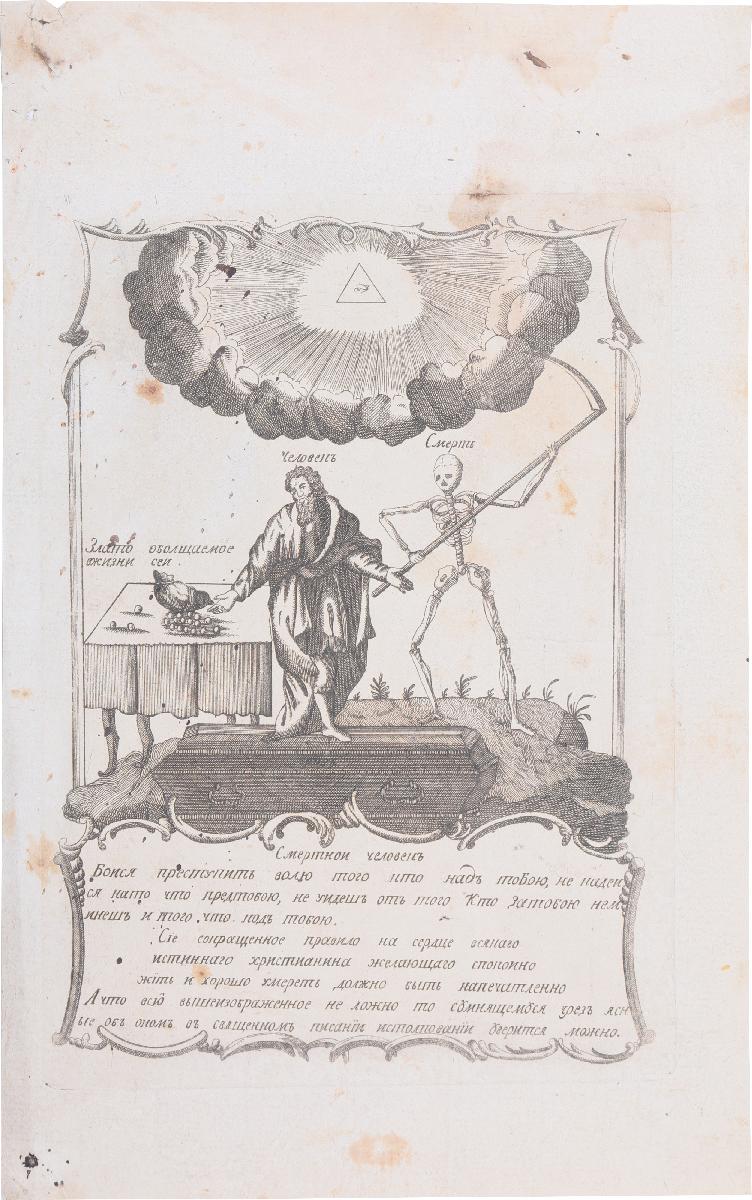 Человекъ
Смерть
Злато обольщаемое
жизни сеи.
Смертнои человекъ
Боися преступить волю того что надъ тобою, не надеи
ся нато что предтобою, не уидешъ отъ того кто затобою нем
инешъ и того что подъ тобою.
Сіе сокращенное правило на сердце всякаго
истиннаго христианина желающаго спокоино
жіть и хорошо умереть должно быть напечатленно
А что всіо вышеизображенное не ложно то сумнящемуся чрезъ ясн
ые объ ономъ въ священномъ писаніи истолкованіи уверится можно.